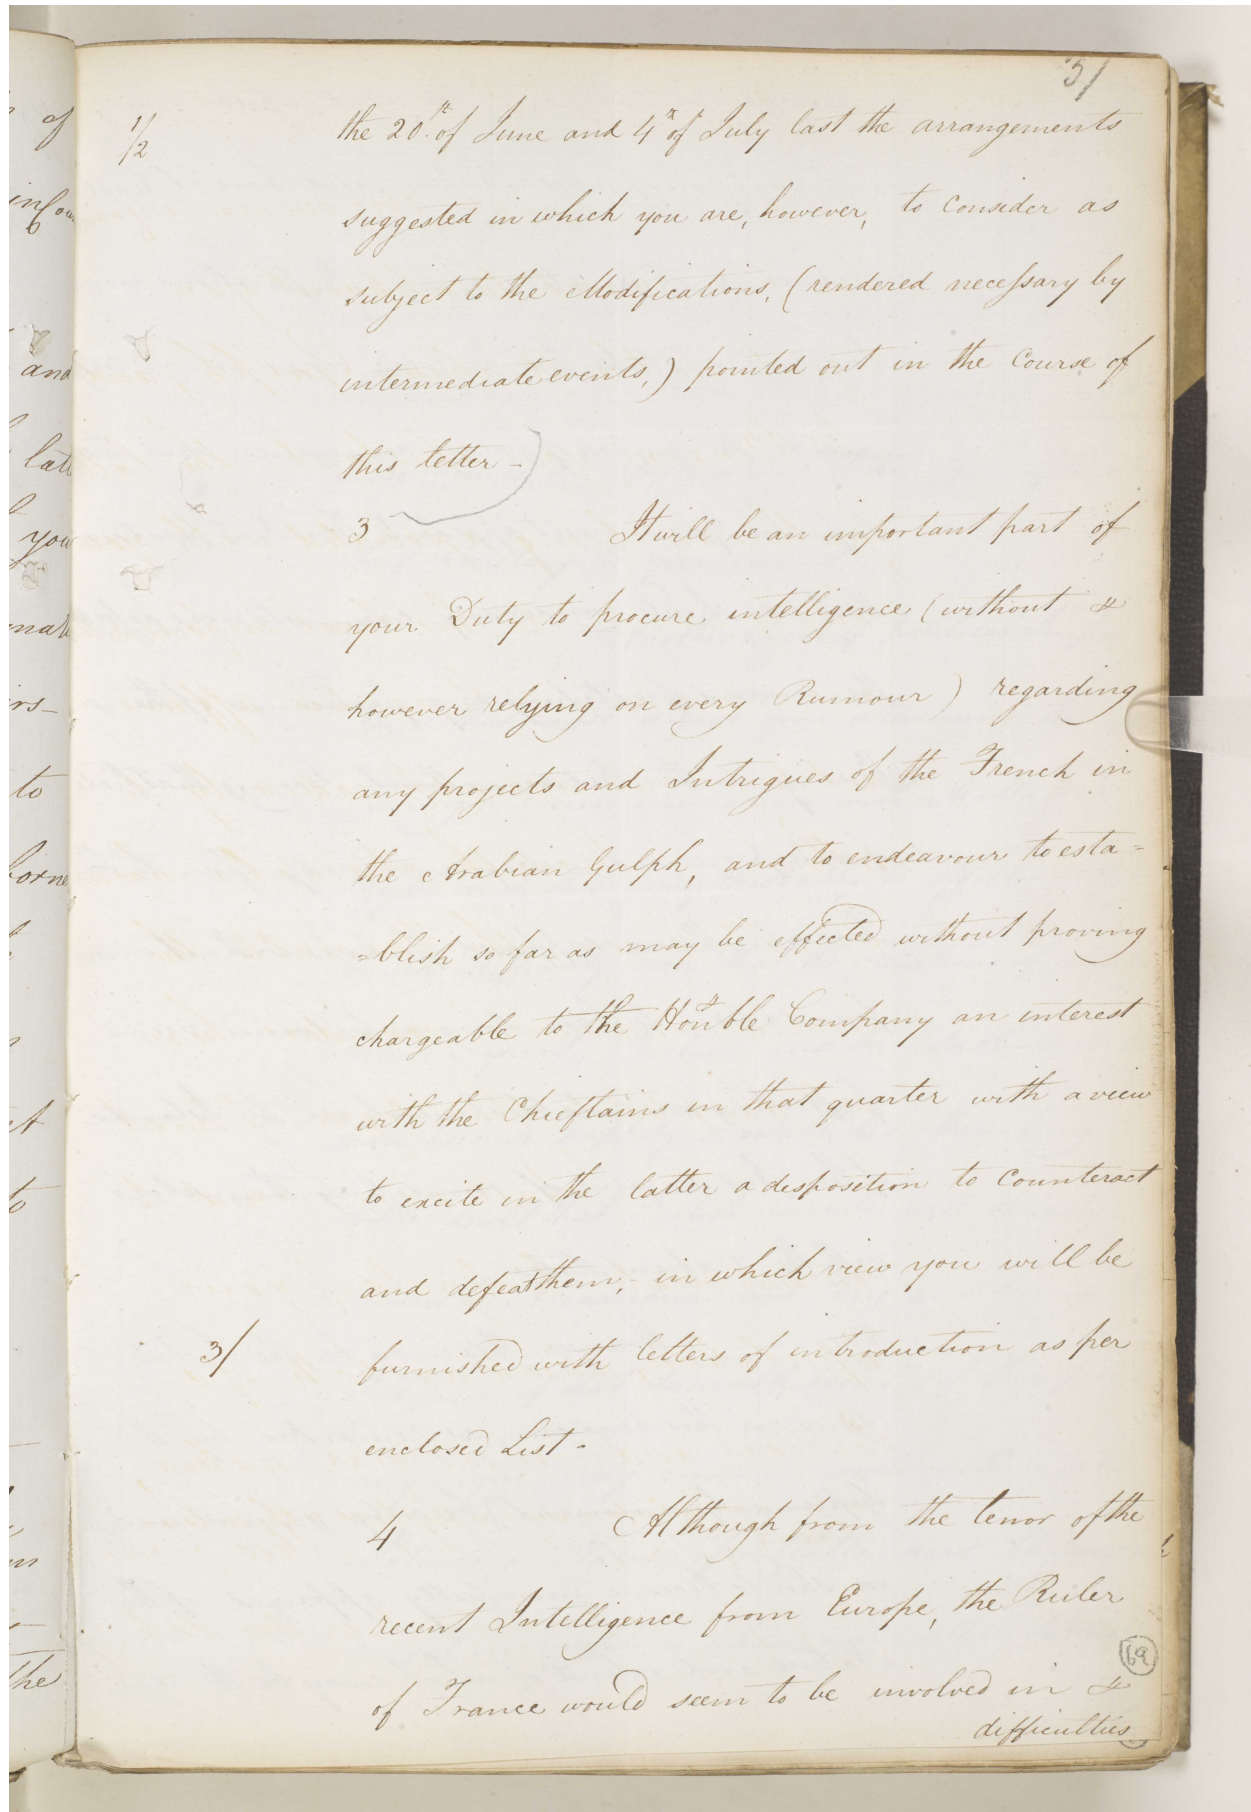 51
1/2
the 20th. of June and 4th of July last the arrangements
suggested in which you are, however, to Consider as
subject to the Modifications, (rendered necessary by
intermediate events,) pointed out in the Course of
this letter -
3 It will be an important part of
your Duty to procure intelligence (without
however relying on every Rumour) regarding
any projects and Intrigues of the French in
the Arabian Gulph, and to endeavour to esta=
=blish so far as may be effected without proving
chargeable to the Hon'ble Company an interest
with the Chieftains in that quarter with a view
to excite in the latter a disposition to Counteract
and defeat them, - in which view you will be
3/
furnished with letters of introduction as per
enclosed List -
4 Although from the tenor of the
recent Intelligence from Europe, the Ruler
of France would seem to be involved in
difficulties
69
of
and
late
you
to
to
The